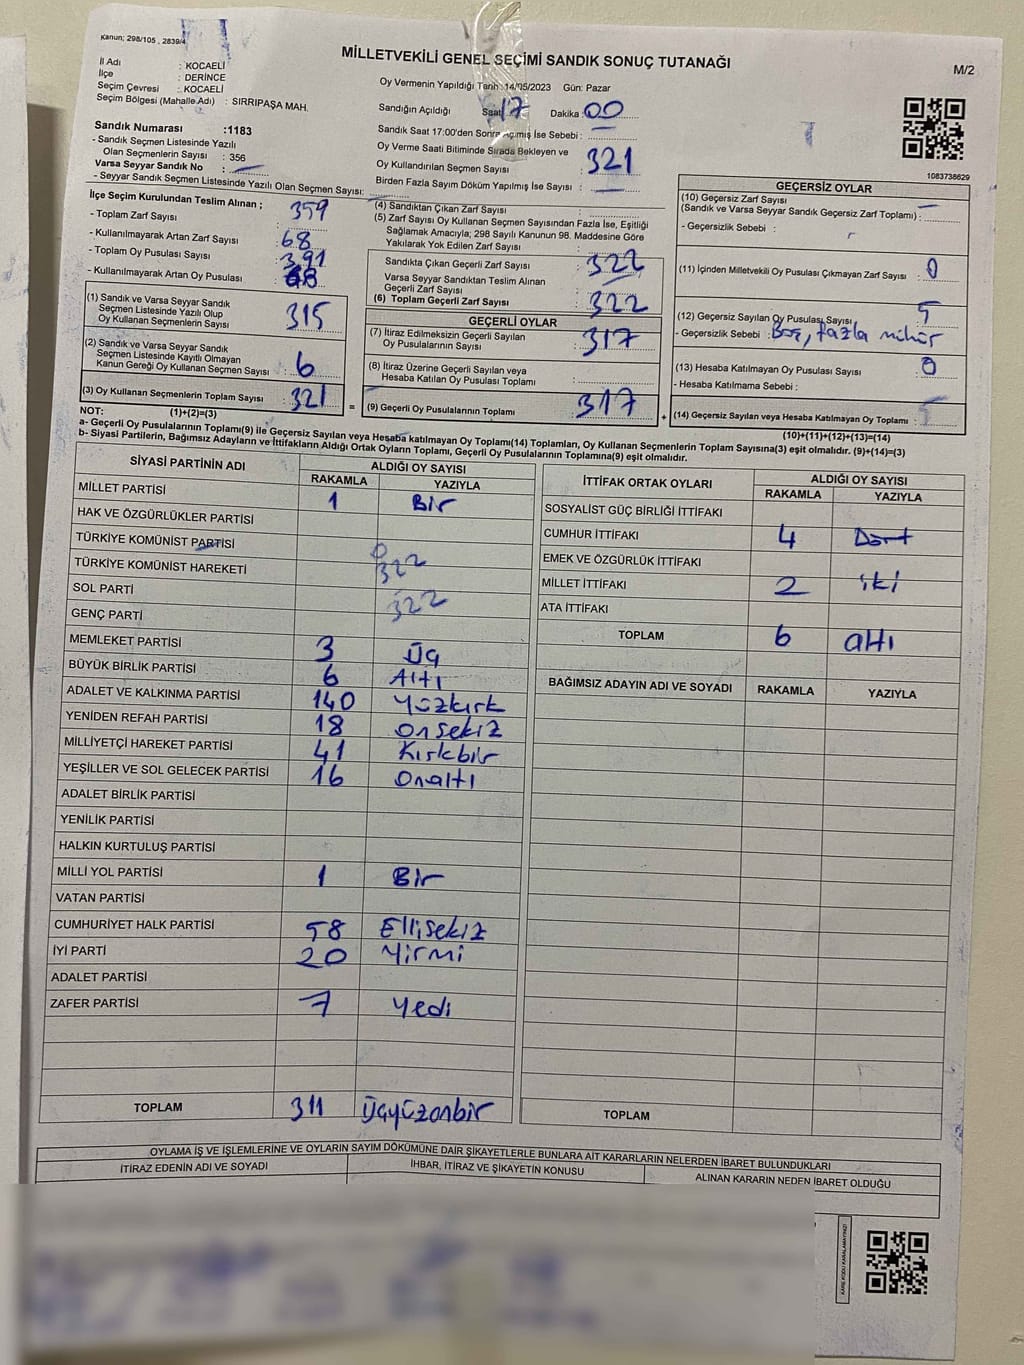 Kanun; 298/105 , 2839/4
MİLLETVEKİLİ GENEL SEÇİMİ SANDIK SONUÇ TUTANAĞI
M/2
İl Adı : KOCAELİ
İlçe : DERİNCE
Seçim Çevresi : KOCAELİ
Seçim Bölgesi (Mahalle Adı) : SIRRIPAŞA MAH.
Sandık Numarası :1183
- Sandık Seçmen Listesinde Yazılı
Olan Seçmenlerin Sayısı : 356
Varsa Seyyar Sandık No :
- Seyyar Sandık Seçmen Listesinde Yazılı Olan Seçmen Sayısı:
Oy Vermenin Yapıldığı Tarih : 14/05/2023 Gün: Pazar
Sandığın Açıldığı Saat 17 Dakika : 00
Sandık Saat 17:00'den Sonra Açmış İse Sebebi :
Oy Verme Saati Bitiminde Sırada Bekleyen ve
Oy Kullandırılan Seçmen Sayısı : 321
Birden Fazla Sayım Döküm Yapılmış İse Sayısı :
1083738629
İlçe Seçim Kurulundan Teslim Alınan ;
- Toplam Zarf Sayısı : 359
- Kullanılmayarak Artan Zarf Sayısı : 68
- Toplam Oy Pusulası Sayısı : 391
- Kullanılmayarak Artan Oy Pusulası
(1) Sandık ve Varsa Seyyar Sandık
Seçmen Listesinde Yazılı Olup
Oy Kullanan Seçmenlerin Sayısı : 315
(2) Sandık ve Varsa Seyyar Sandık
Seçmen Listesinde Kayıtlı Olmayan
Kanun Gereği Oy Kullanan Seçmen Sayısı : 6
(3) Oy Kullanan Seçmenlerin Toplam Sayısı : 321
(4) Sandıktan Çıkan Zarf Sayısı :
(5) Zarf Sayısı Oy Kullanan Seçmen Sayısından Fazla İse, Eşitliği
Sağlamak Amacıyla; 298 Sayılı Kanunun 98. Maddesine Göre
Yakılarak Yok Edilen Zarf Sayısı :
Sandıkta Çıkan Geçerli Zarf Sayısı : 322
Varsa Seyyar Sandıktan Teslim Alınan
Geçerli Zarf Sayısı :
(6) Toplam Geçerli Zarf Sayısı : 322
GEÇERLİ OYLAR
(7) İtiraz Edilmeksizin Geçerli Sayılan
Oy Pusulalarının Sayısı : 317
(8) İtiraz Üzerine Geçerli Sayılan veya
Hesaba Katılan Oy Pusulası Toplamı :
= (9) Geçerli Oy Pusulalarının Toplamı : 317
GEÇERSİZ OYLAR
(10) Geçersiz Zarf Sayısı
(Sandık ve Varsa Seyyar Sandık Geçersiz Zarf Toplamı) :
- Geçersizlik Sebebi :
(11) İçinden Milletvekili Oy Pusulası Çıkmayan Zarf Sayısı : 0
(12) Geçersiz Sayılan Oy Pusulası Sayısı : 5
- Geçersizlik Sebebi : Boş, fazla mühür
(13) Hesaba Katılmayan Oy Pusulası Sayısı : 0
- Hesaba Katılmama Sebebi :
+ (14) Geçersiz Sayılan veya Hesaba Katılmayan Oy Toplamı : 5
NOT: (1)+(2)=(3)
(10)+(11)+(12)+(13)=(14)
a- Geçerli Oy Pusulalarının Toplamı(9) ile Geçersiz Sayılan veya Hesaba katılmayan Oy Toplamı(14) Toplamları, Oy Kullanan Seçmenlerin Toplam Sayısına(3) eşit olmalıdır. (9)+(14)=(3)
b- Siyasi Partilerin, Bağımsız Adayların ve İttifakların Aldığı Ortak Oyların Toplamı, Geçerli Oy Pusulalarının Toplamına(9) eşit olmalıdır.
SİYASİ PARTİNİN ADI
ALDIĞI OY SAYISI
RAKAMLA YAZIYLA
MİLLET PARTİSİ 1 Bir
HAK VE ÖZGÜRLÜKLER PARTİSİ
TÜRKİYE KOMÜNİST PARTİSİ
TÜRKİYE KOMÜNİST HAREKETİ 322
SOL PARTİ 322
GENÇ PARTİ
MEMLEKET PARTİSİ 3 Üç
BÜYÜK BİRLİK PARTİSİ 6 Altı
ADALET VE KALKINMA PARTİSİ 140 Yüzkırk
YENİDEN REFAH PARTİSİ 18 Onsekiz
MİLLİYETÇİ HAREKET PARTİSİ 41 Kırkbir
YEŞİLLER VE SOL GELECEK PARTİSİ 16 Onaltı
ADALET BİRLİK PARTİSİ
YENİLİK PARTİSİ
HALKIN KURTULUŞ PARTİSİ
MİLLİ YOL PARTİSİ 1 Bir
VATAN PARTİSİ
CUMHURİYET HALK PARTİSİ 58 Ellisekiz
İYİ PARTİ 20 Yirmi
ADALET PARTİSİ
ZAFER PARTİSİ 7 Yedi
TOPLAM 311 Üçyüzonbir
İTTİFAK ORTAK OYLARI
ALDIĞI OY SAYISI
RAKAMLA YAZIYLA
SOSYALİST GÜÇ BİRLİĞİ İTTİFAKI
CUMHUR İTTİFAKI 4 Dört
EMEK VE ÖZGÜRLÜK İTTİFAKI
MİLLET İTTİFAKI 2 iki
ATA İTTİFAKI
TOPLAM 6 altı
BAĞIMSIZ ADAYIN ADI VE SOYADI RAKAMLA YAZIYLA
TOPLAM
OYLAMA İŞ VE İŞLEMLERİNE VE OYLARIN SAYIM DÖKÜMÜNE DAİR ŞİKAYETLERLE BUNLARA AİT KARARLARIN NELERDEN İBARET BULUNDUKLARI
İTİRAZ EDENİN ADI VE SOYADI İHBAR, İTİRAZ VE ŞİKAYETİN KONUSU ALINAN KARARIN NEDEN İBARET OLDUĞU
KARE KODU KARALAMAYINIZ!